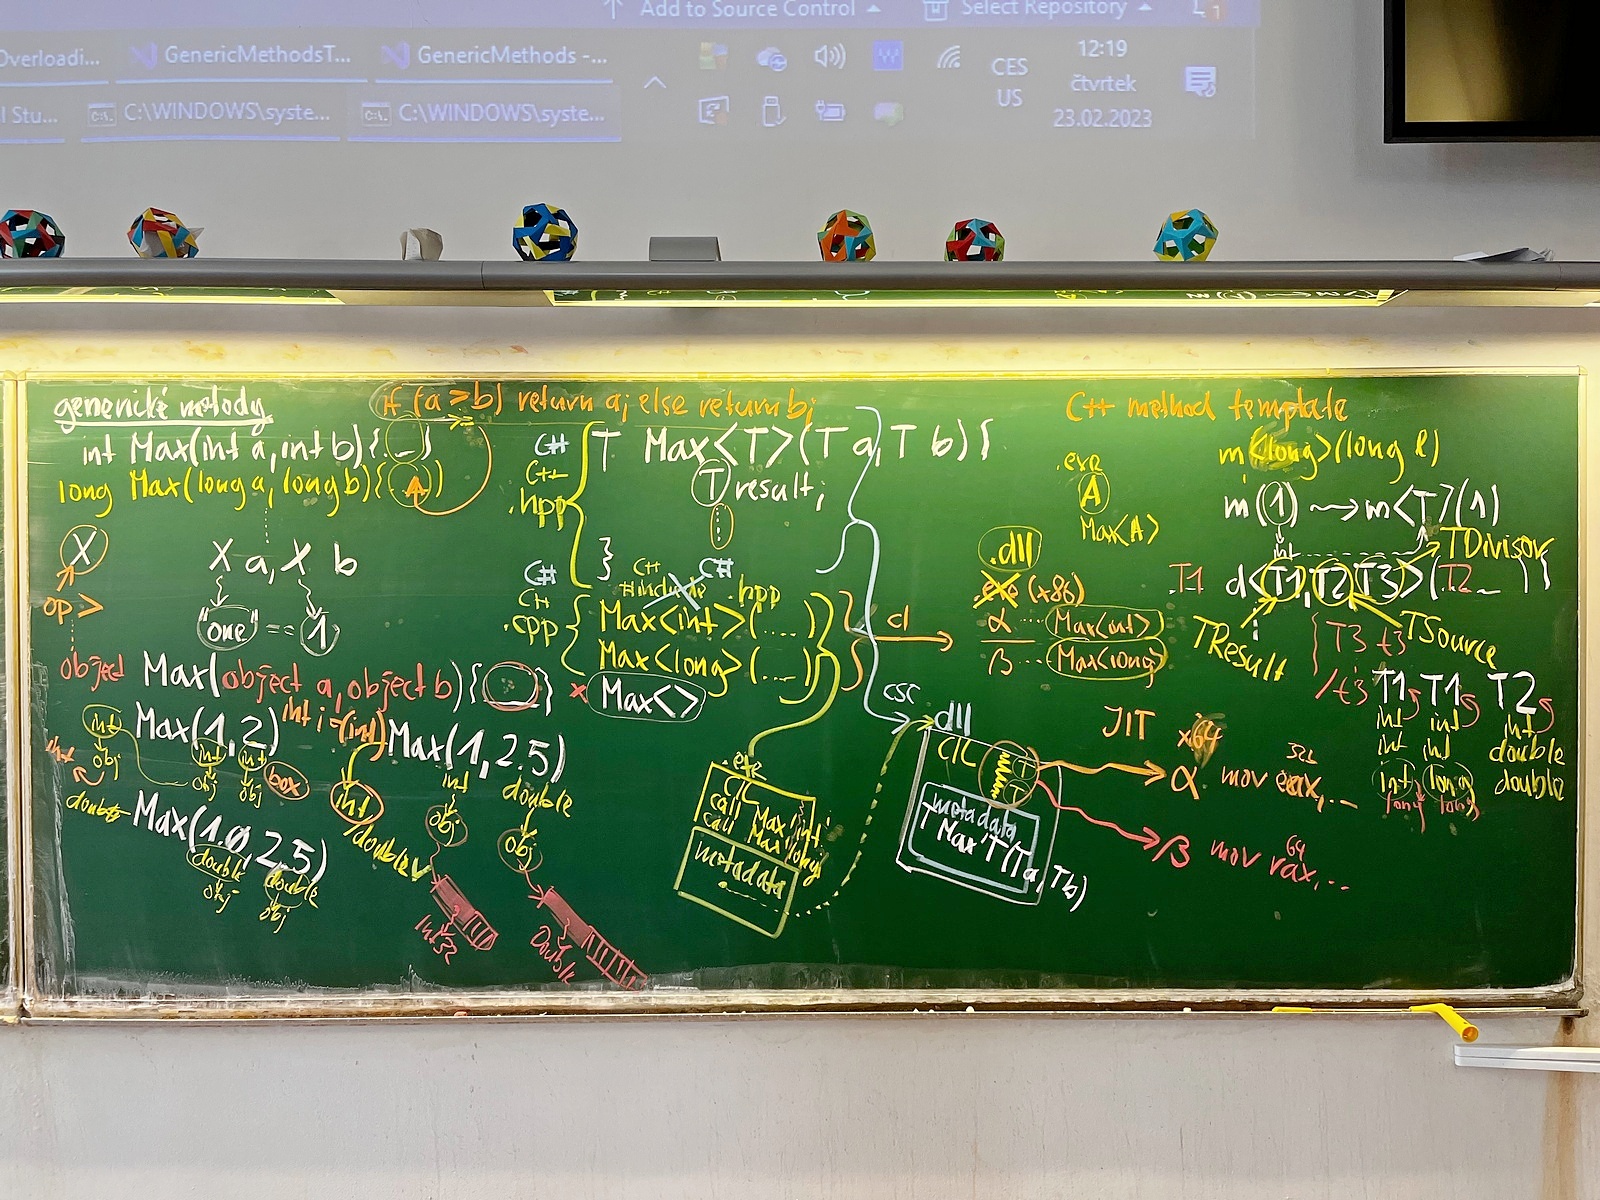 Add to Source Control
Select Repository
Overloadi...
GenericMethodsT...
GenericMethods -...
12:19
CES
čtvrtek
US
l Stu...
C:\WINDOWS\syste...
C:\WINDOWS\syste...
23.02.2023
generické metody
if (a > b) return a; else return b;
>=
int Max(int a, int b){...}
long Max(long a, long b){ A }
X
op >
X a, X b
"one" == 1
object Max(object a, object b){ }
int Max(1, 2)
obj
int int
obj obj
box
int i = (int) Max(1, 2.5)
int
double
obj
obj
int
/double
Int32
Double
double Max(1.0, 2.5)
double double
obj obj
C#
C++
.hpp
T Max<T>(T a, T b) {
T result;
}
C++ C#
#include .hpp
C#
C++
.cpp
Max<int>(....)
Max<long>(...)
x Max<>
cl
csc
.exe
CIL
call Max<int>
call Max<long>
metadata
dll
CIL
T
T
metadata
Max'T(T a, T b)
C++ method template
.exe
A
Max<A>
.dll
.exe (x86)
α ... Max<int>
β ... Max<long>
JIT x64
32b
α mov eax,...
64
β mov rax,...
m<long>(long l)
m(1) → m<T>(1)
int
TDivisor
T1 d<T1,T2,T3>(T2 _ ) {
TResult
TSource
T3 t3
T1 T1 T2
int int int
int int double
int long double
long long